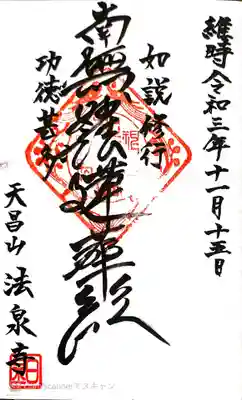 維時令和三年十一月十五日
如説修行
南無妙法蓮華経
功徳甚多
天昌山 法泉寺